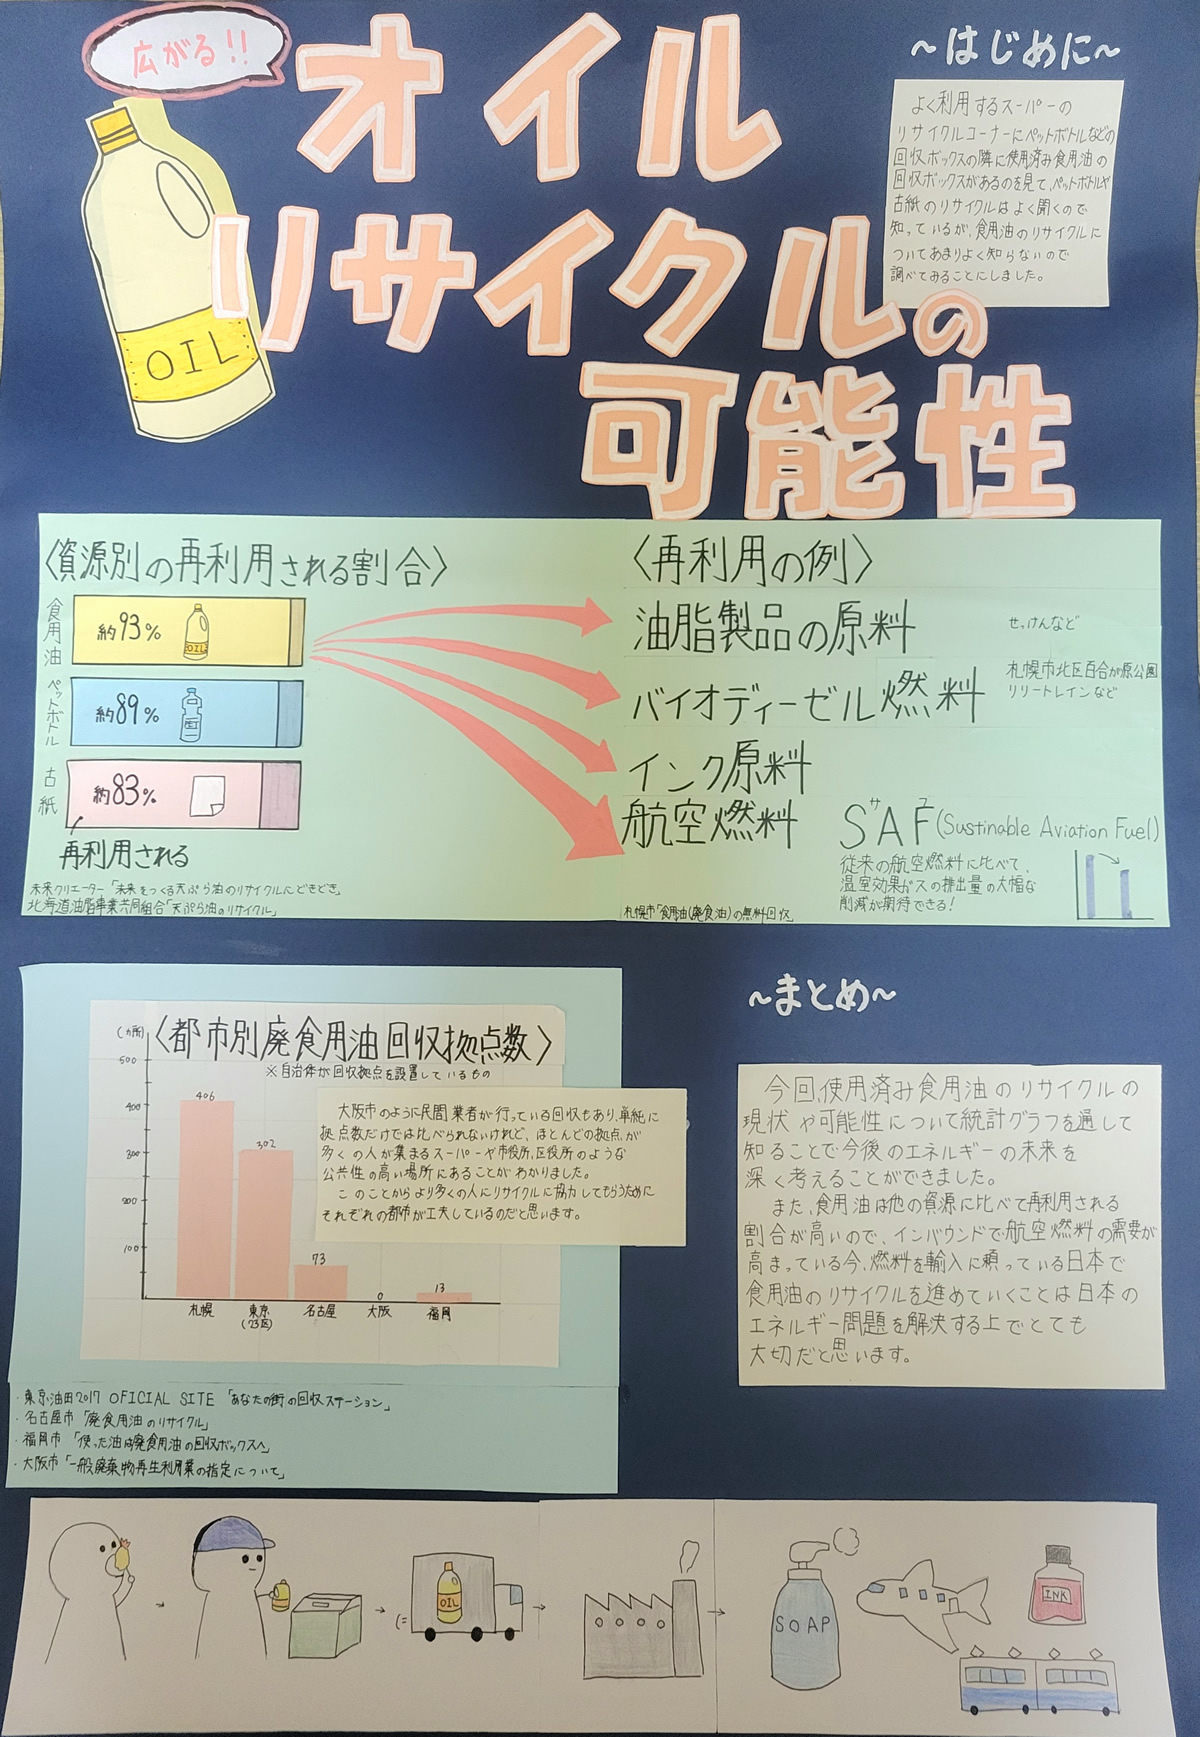 広がる!!
オイル
リサイクルの
可能性
OIL
～はじめに～
よく利用するスーパーの
リサイクルコーナーにペットボトルなどの
回収ボックスの隣に使用済み食用油の
回収ボックスがあるのを見て、ペットボトルや
古紙のリサイクルはよく聞くので
知っているが、食用油のリサイクルに
ついてあまりよく知らないので
調べてみることにしました。
〈資源別の再利用される割合〉
食用油
約93%
OIL
ペットボトル
約89%
古紙
約83%
再利用される
未来クリエーター「未来をつくる天ぷら油のリサイクルにどきどき」
北海道油脂事業共同組合「天ぷら油のリサイクル」
〈再利用の例〉
油脂製品の原料
せっけんなど
バイオディーゼル燃料
札幌市北区百合が原公園
リリートレインなど
インク原料
航空燃料
サフ
SAF(Sustinable Aviation Fuel)
従来の航空燃料に比べて、
温室効果ガスの排出量の大幅な
削減が期待できる!
札幌市「食用油(廃食油)の無料回収」
〈都市別廃食用油回収拠点数〉
※自治体が回収拠点を設置しているもの
(カ所)
500
400
300
200
100
406
302
73
0
13
札幌
東京
(23区)
名古屋
大阪
福岡
大阪市のように民間業者が行っている回収もあり、単純に
拠点数だけでは比べられないけれど、ほとんどの拠点が
多くの人が集まるスーパーや市役所、区役所のような
公共性の高い場所にあることがわかりました。
このことからより多くの人にリサイクルに協力してもらうために
それぞれの都市が工夫しているのだと思います。
・東京油田2017 OFICIAL SITE 「あなたの街の回収ステーション」
・名古屋市「廃食用油のリサイクル」
・福岡市「使った油は廃食用油の回収ボックスへ」
・大阪市「一般廃棄物再生利用業の指定について」
～まとめ～
今回、使用済み食用油のリサイクルの
現状や可能性について統計グラフを通して
知ることで今後のエネルギーの未来を
深く考えることができました。
また、食用油は他の資源に比べて再利用される
割合が高いので、インバウンドで航空燃料の需要が
高まっている今、燃料を輸入に頼っている日本で
食用油のリサイクルを進めていくことは日本の
エネルギー問題を解決する上でとても
大切だと思います。
OIL
SOAP
INK